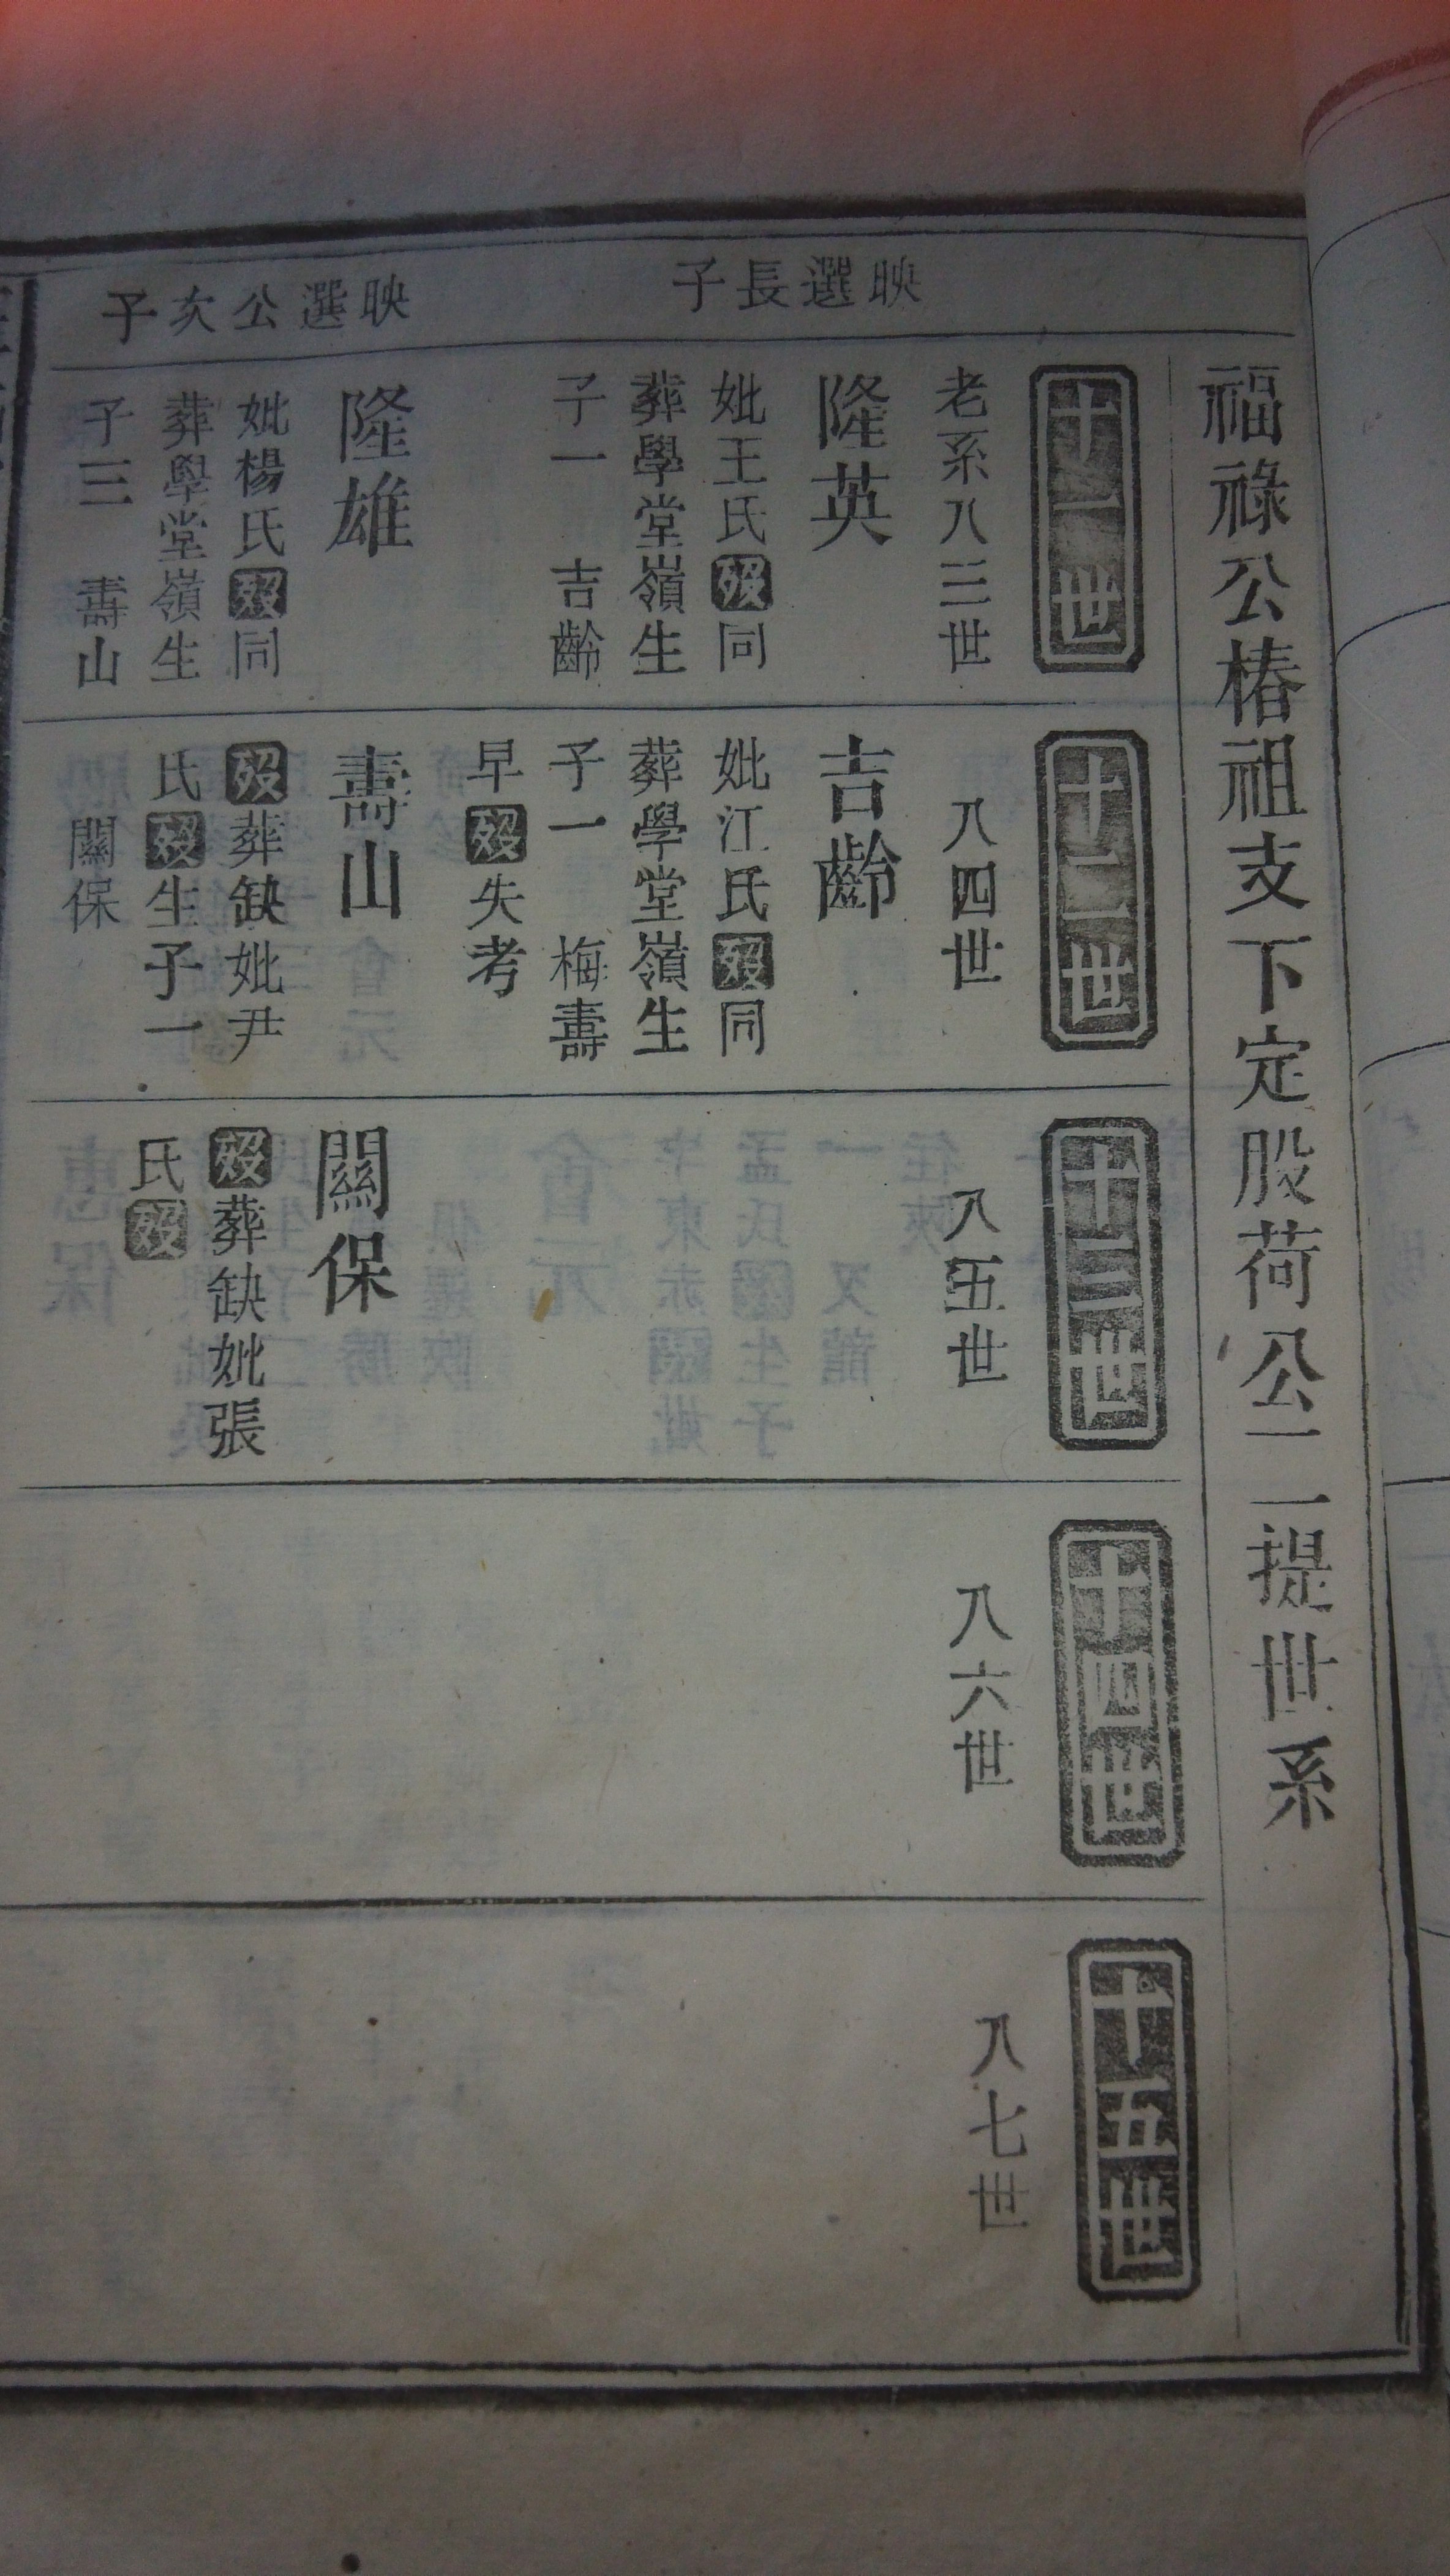 福祿公椿祖支下定股荷公二一提世系
十一世
老系八三世
映選長子
隆英
妣王氏歿同
葬學堂嶺生
子一 吉齡
映選公次子
隆雄
妣楊氏歿同
葬學堂嶺生
子三 壽山
十二世
八四世
吉齡
妣江氏歿同
葬學堂嶺生
子一 梅壽
早歿失考
壽山
歿葬缺妣尹
氏歿生子一
關保
十三世
八五世
關保
歿葬缺妣張
氏歿
十四世
八六世
十五世
八七世